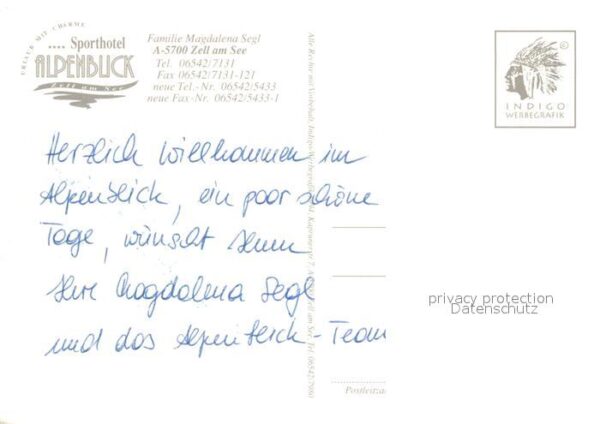 URLAUB MIT CHARME
.... Sporthotel
ALPENBLICK
Zell am See
Familie Magdalena Segl
A-5700 Zell am See
Tel. 06542/7131
Fax 06542/7131-121
neue Tel.-Nr. 06542/5433
neue Fax-Nr. 06542/5433-1
©
INDIGO
WERBEGRAFIK
Herzlich willkommen im
Alpenblick, ein paar schöne
Tage, wünscht Ihnen
Ihre Magdalena Segl
und das Alpenblick-Team
Alle Rechte
privacy protection
Datenschutz
Postleitza